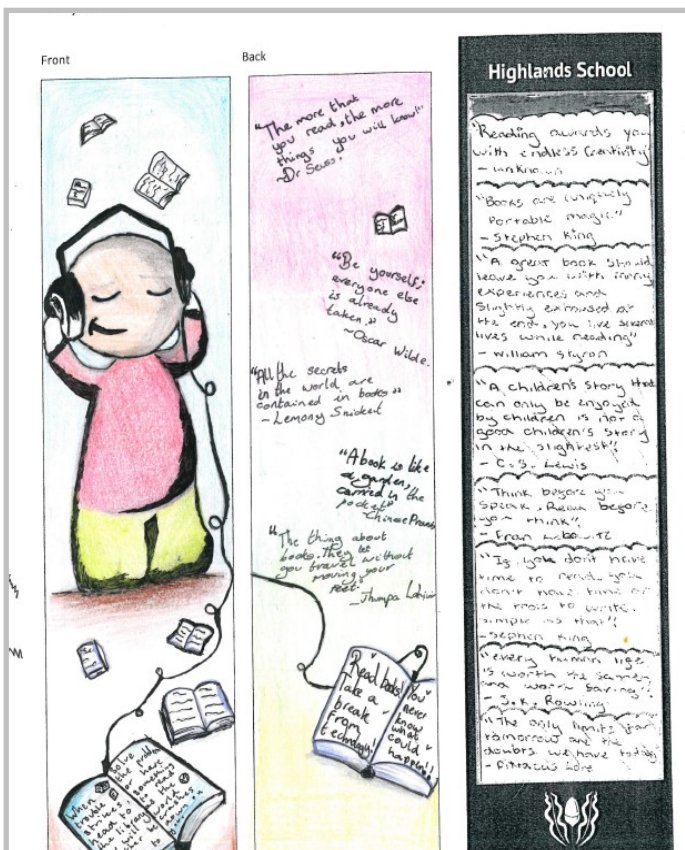 Front
Back
Highlands School
"The more that
you read, the more
things you will know!"
~Dr Seuss.
"Be yourself;
everyone else
is already
taken."
~Oscar Wilde.
"All the secrets
in the world are
contained in books"
- Lemony Snicket
"A book is like
a garden,
carried in the
pocket"
-Chinese Proverb
"The thing about
books. They let
you travel without
moving your
feet"
-Jhumpa Lahiri
Read books!
Take a
break
from
technology!
You
never
know
what
could
happen!
When
trouble
strikes,
head to
the library
Solve
the
here
something
read
"Reading awards you
with endless Creativity"
- unknown
"Books are uniquely
Portable magic"
- Stephen King
"A great book should
leave you with many
experiences and
slightly exhausted at
the end. you live several
lives while reading"
- William Styron
"A children's story that
can only be enjoyed
by children is not a
good children's story
in the slightest"
- C.S. Lewis
"Think before you
Speak. Read before
you think".
- Fran Lebowitz
"If you don't have
time to read, you
don't have time or
the tools to write.
simple as that"
- Stephen King
"every human life
is worth the same,
and worth Saving".
- J.K. Rowling
"The only limits for
tomorrow are the
doubts we have today
- Pittacus Lore